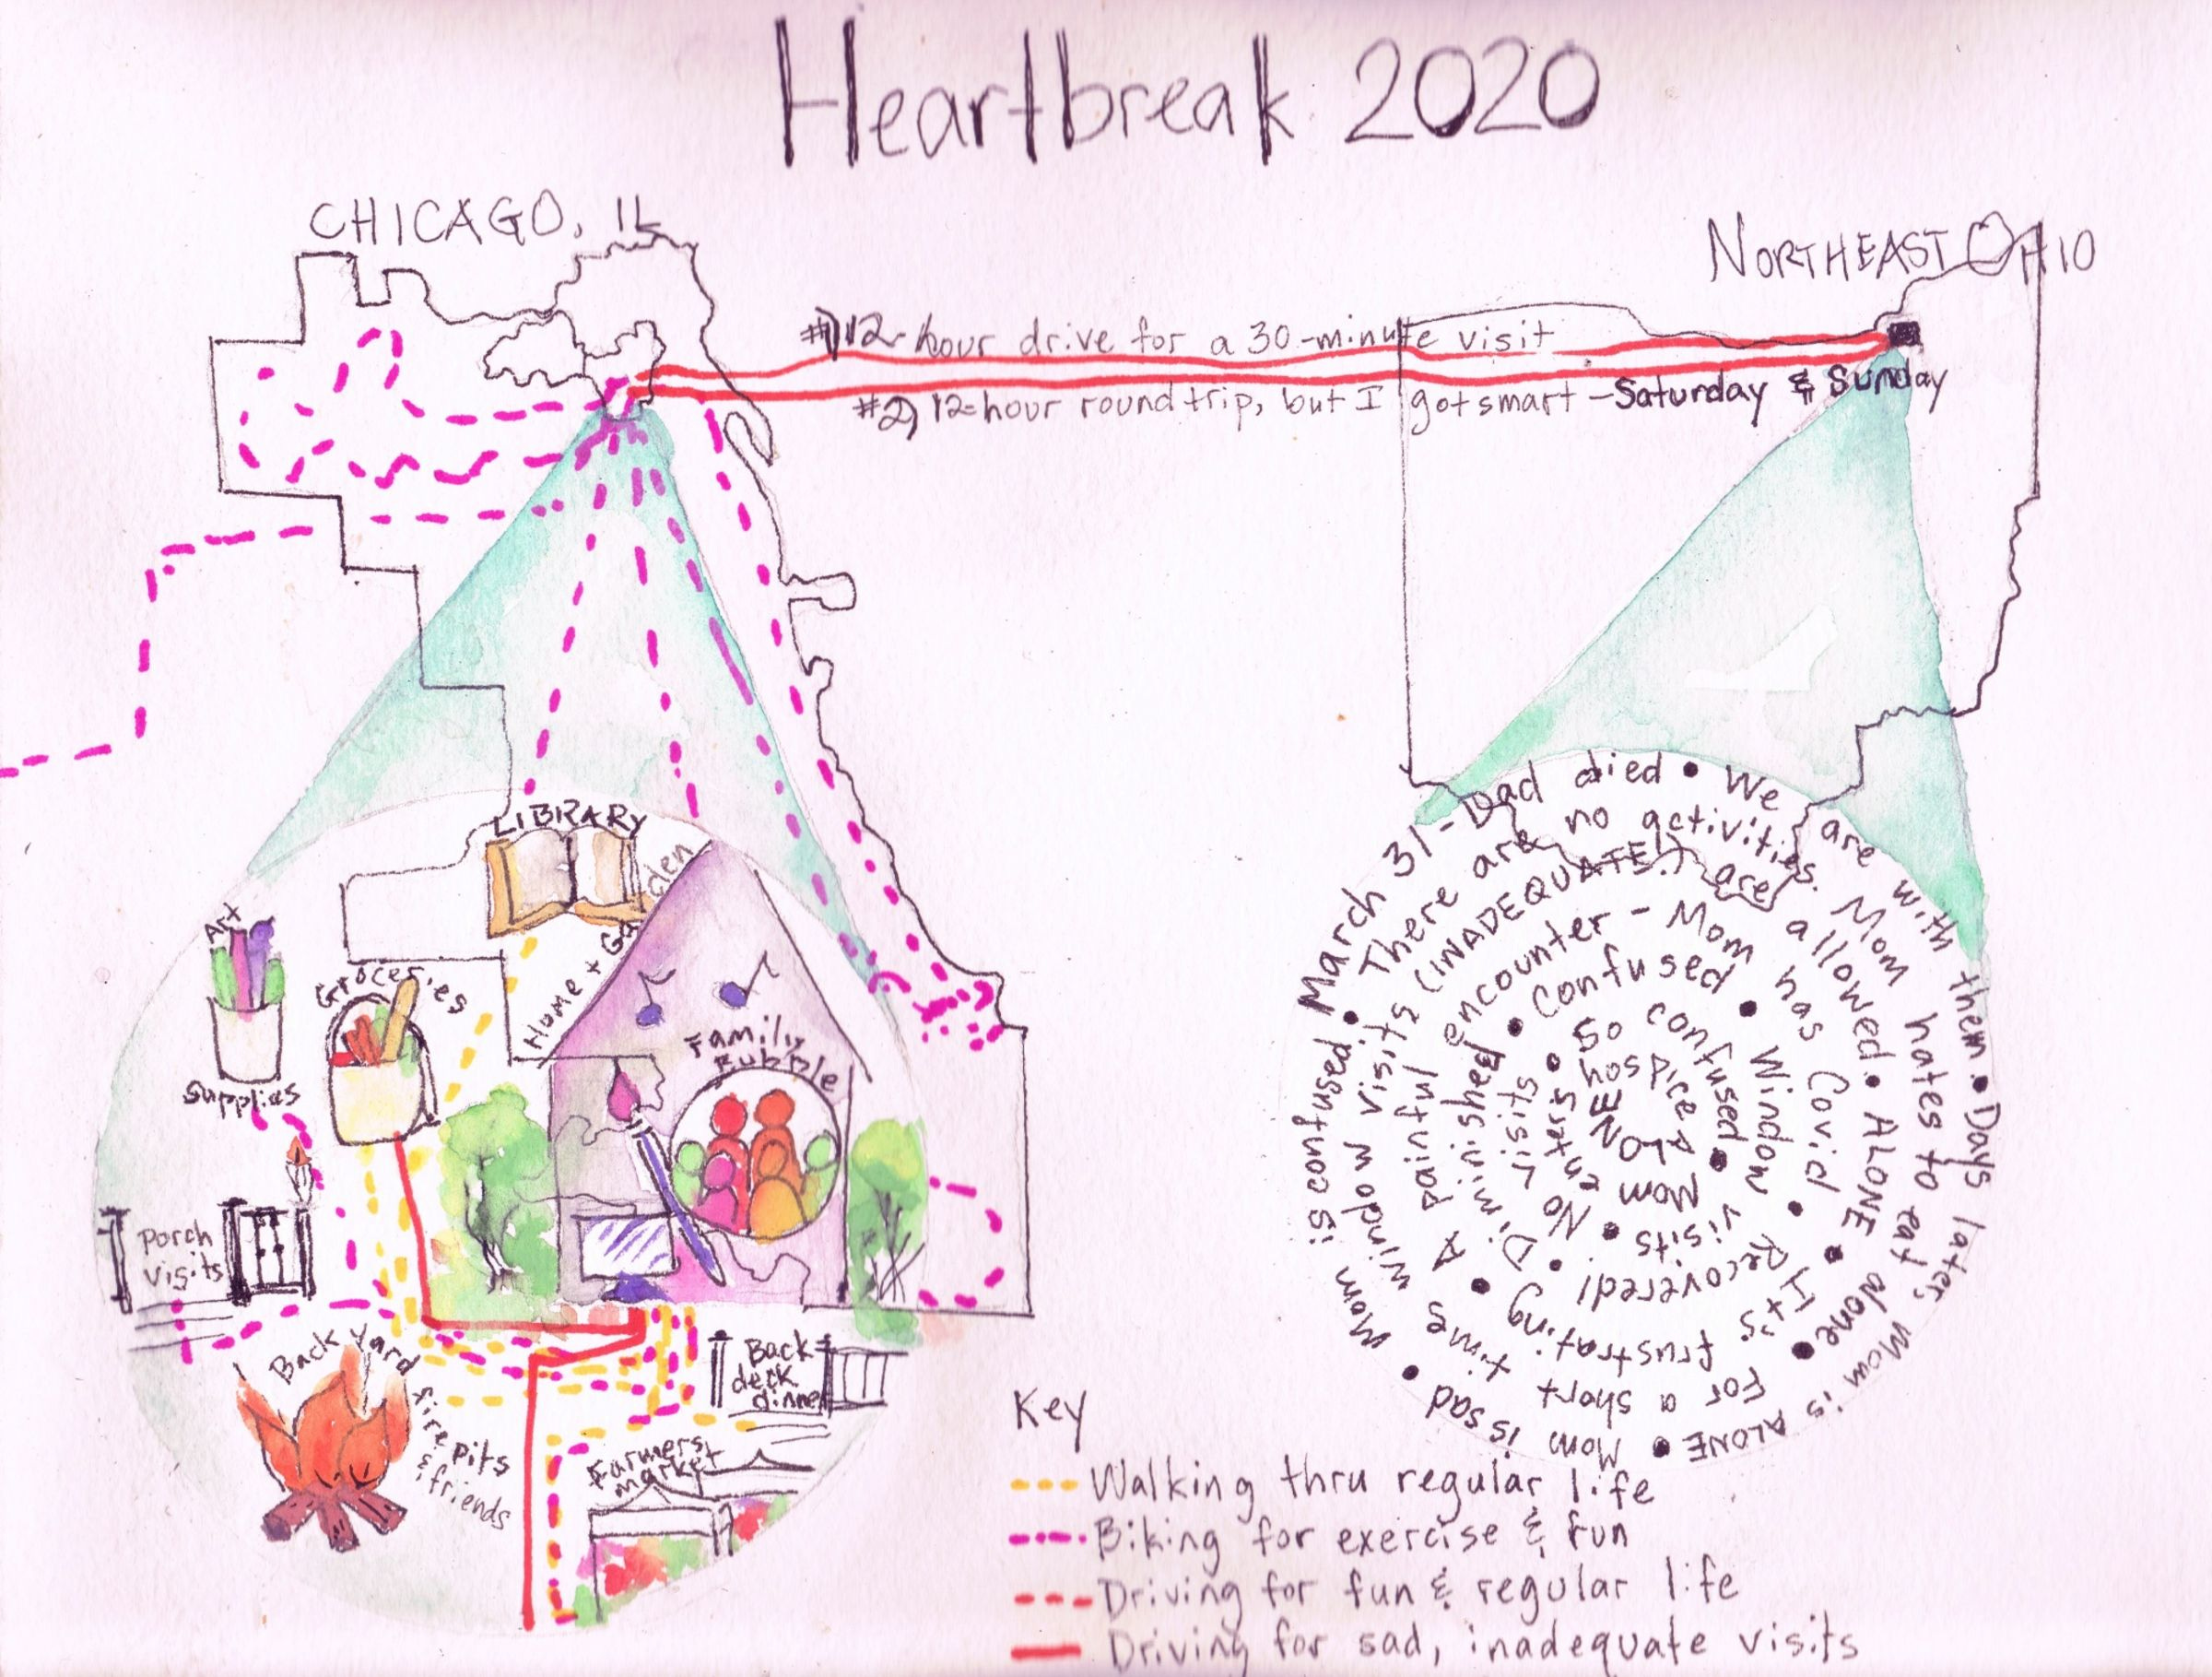 Heartbreak 2020
CHICAGO, IL
NORTHEAST OHIO
#1) 12-hour drive for a 30-minute visit
#2) 12-hour round trip, but I got smart - Saturday & Sunday
LIBRARY
Home + Garden
Art
supplies
Groceries
Family
Bubble
Porch
visits
Back yard fire pits
& friends
Back
deck
dinner
Farmers
market
March 31 - Dad died • We are with them • Days later, Mom is ALONE • Mom is sad • Mom is confused • There are no activities. Mom hates to eat alone • For a short time window visits (INADEQUATE!) are allowed. • ALONE • It's frustrating • A painful encounter - Mom has Covid • Recovered! • Diminished • Confused • Window visits • No visits • So confused • Mom enters hospice ALONE
Key
Walking thru regular life
Biking for exercise & fun
Driving for fun & regular life
Driving for sad, inadequate visits